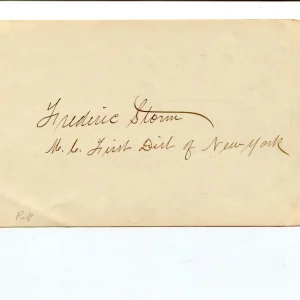 Frederic Storm
M. C. First Dist of New York
Rep.